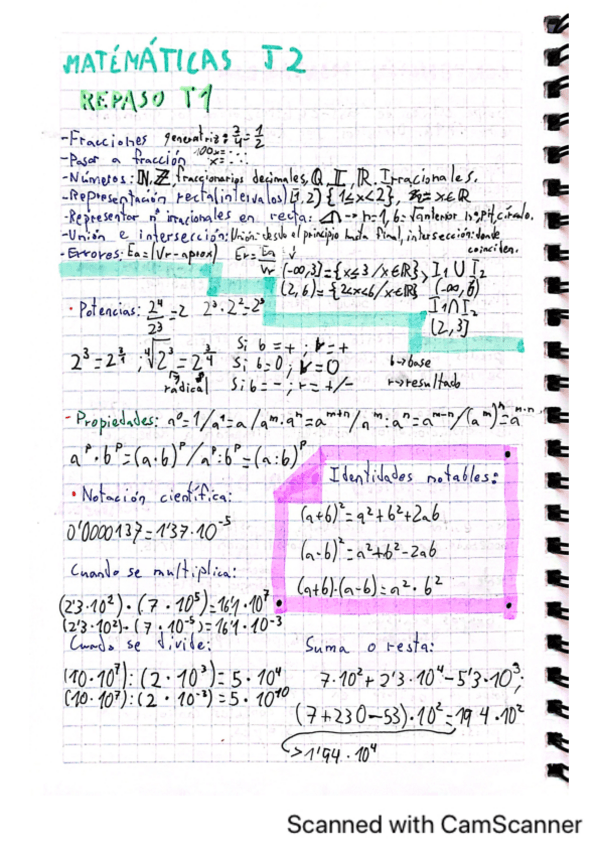 MATÉMÁTICAS T2
REPASO T1
-Fracciones generatriz: 3/4=1/2
-Pasar a fracción 100x=... x=...
-Números: ℕ, ℤ, fraccionarios decimales, ℚ, 𝕀, ℝ. Irracionales.
-Representación recta(intervalos) [1,2) {1≤x<2}, x∈ℝ
-Representar nº irracionales en recta: → h=1, b=√anterior
-Unión e intersección: Unión: desde el principio hasta final, intersección: donde coinciden.
-Errores: Ea=|Vr-aprox| Er=Ea/Vr ↓
(-∞,3]={x≤3/x∈ℝ} > I₁ U I₂
(2,6)={2<x<6/x∈ℝ} (-∞,6)
I₁∩I₂
(2,3]
· Potencias: 2⁴/2³=2 2³·2²=2⁵
Si b=+ ; r=+
Si b=0 ; r=0
Si b=- ; r=+/-
radical
b→base
r→resultado
- Propiedades: a⁰=1/a¹=a/aᵐ·aⁿ=aᵐ⁺ⁿ/aᵐ:aⁿ=aᵐ⁻ⁿ/(aᵐ)ⁿ=aᵐ·ⁿ
aᵖ·bᵖ=(a·b)ᵖ/aᵖ:bᵖ=(a:b)ᵖ
Identidades notables:
(a+b)²=a²+b²+2ab
(a-b)²=a²+b²-2ab
(a+b)·(a-b)=a²·b²
· Notación científica:
0'0000137=1'37·10⁻⁵
Cuando se multiplica:
(2'3·10²)·(7·10⁵)=16'1·10⁷
(2'3·10²)·(7·10⁻⁵)=16'1·10⁻³
Cuando se divide:
(10·10⁷):(2·10³)=5·10⁴
(10·10⁷):(2·10⁻³)=5·10¹⁰
Suma o resta:
7·10²+2'3·10⁴-5'3·10³;
(7+230-53)·10²=194·10²
↳>1'94·10⁴
Scanned with CamScanner